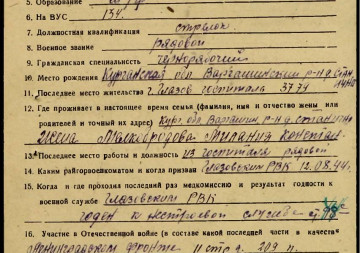 5. Образование
6. На ВУС 134.
7. Должностная квалификация стрелок
8. Военное звание рядовой
9. Гражданская специальность чернорабочий
10. Место рождения Курганская обл Варгашинский р-н д.
11. Последнее место жительства г. Глазов госпиталь 3779
12. Где проживает в настоящее время семья (фамилия, имя и отчество жены или
родителей и точный их адрес) Кург. обл Варгашин. р-н д.
Жена
13. Последнее место работы и должность из госпиталя рядовой
14. Каким райгорвоенкоматом и когда призван Глазовским РВК 12.08.44г.
15. Когда и где проходил последний раз медкомиссию и результат годности к
военной службе Глазовским РВК
годен к нестроевой службе
16. Участие в Отечественной войне (в составе какой последней части в качестве
Ленинградском фронте 11 стр. д. 209 п.